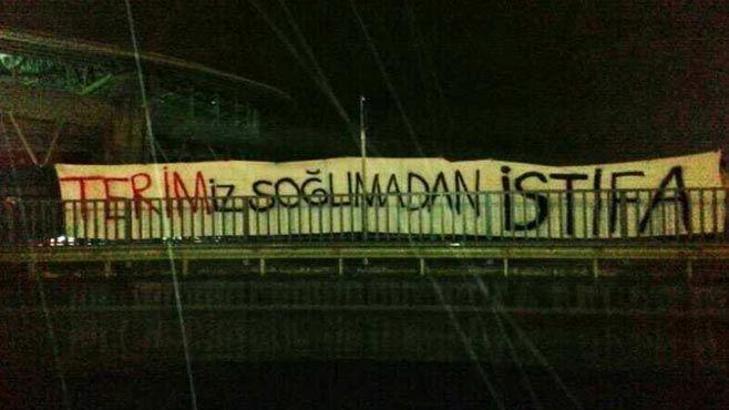 TERİMiZ SOĞUMADAN İSTİFA